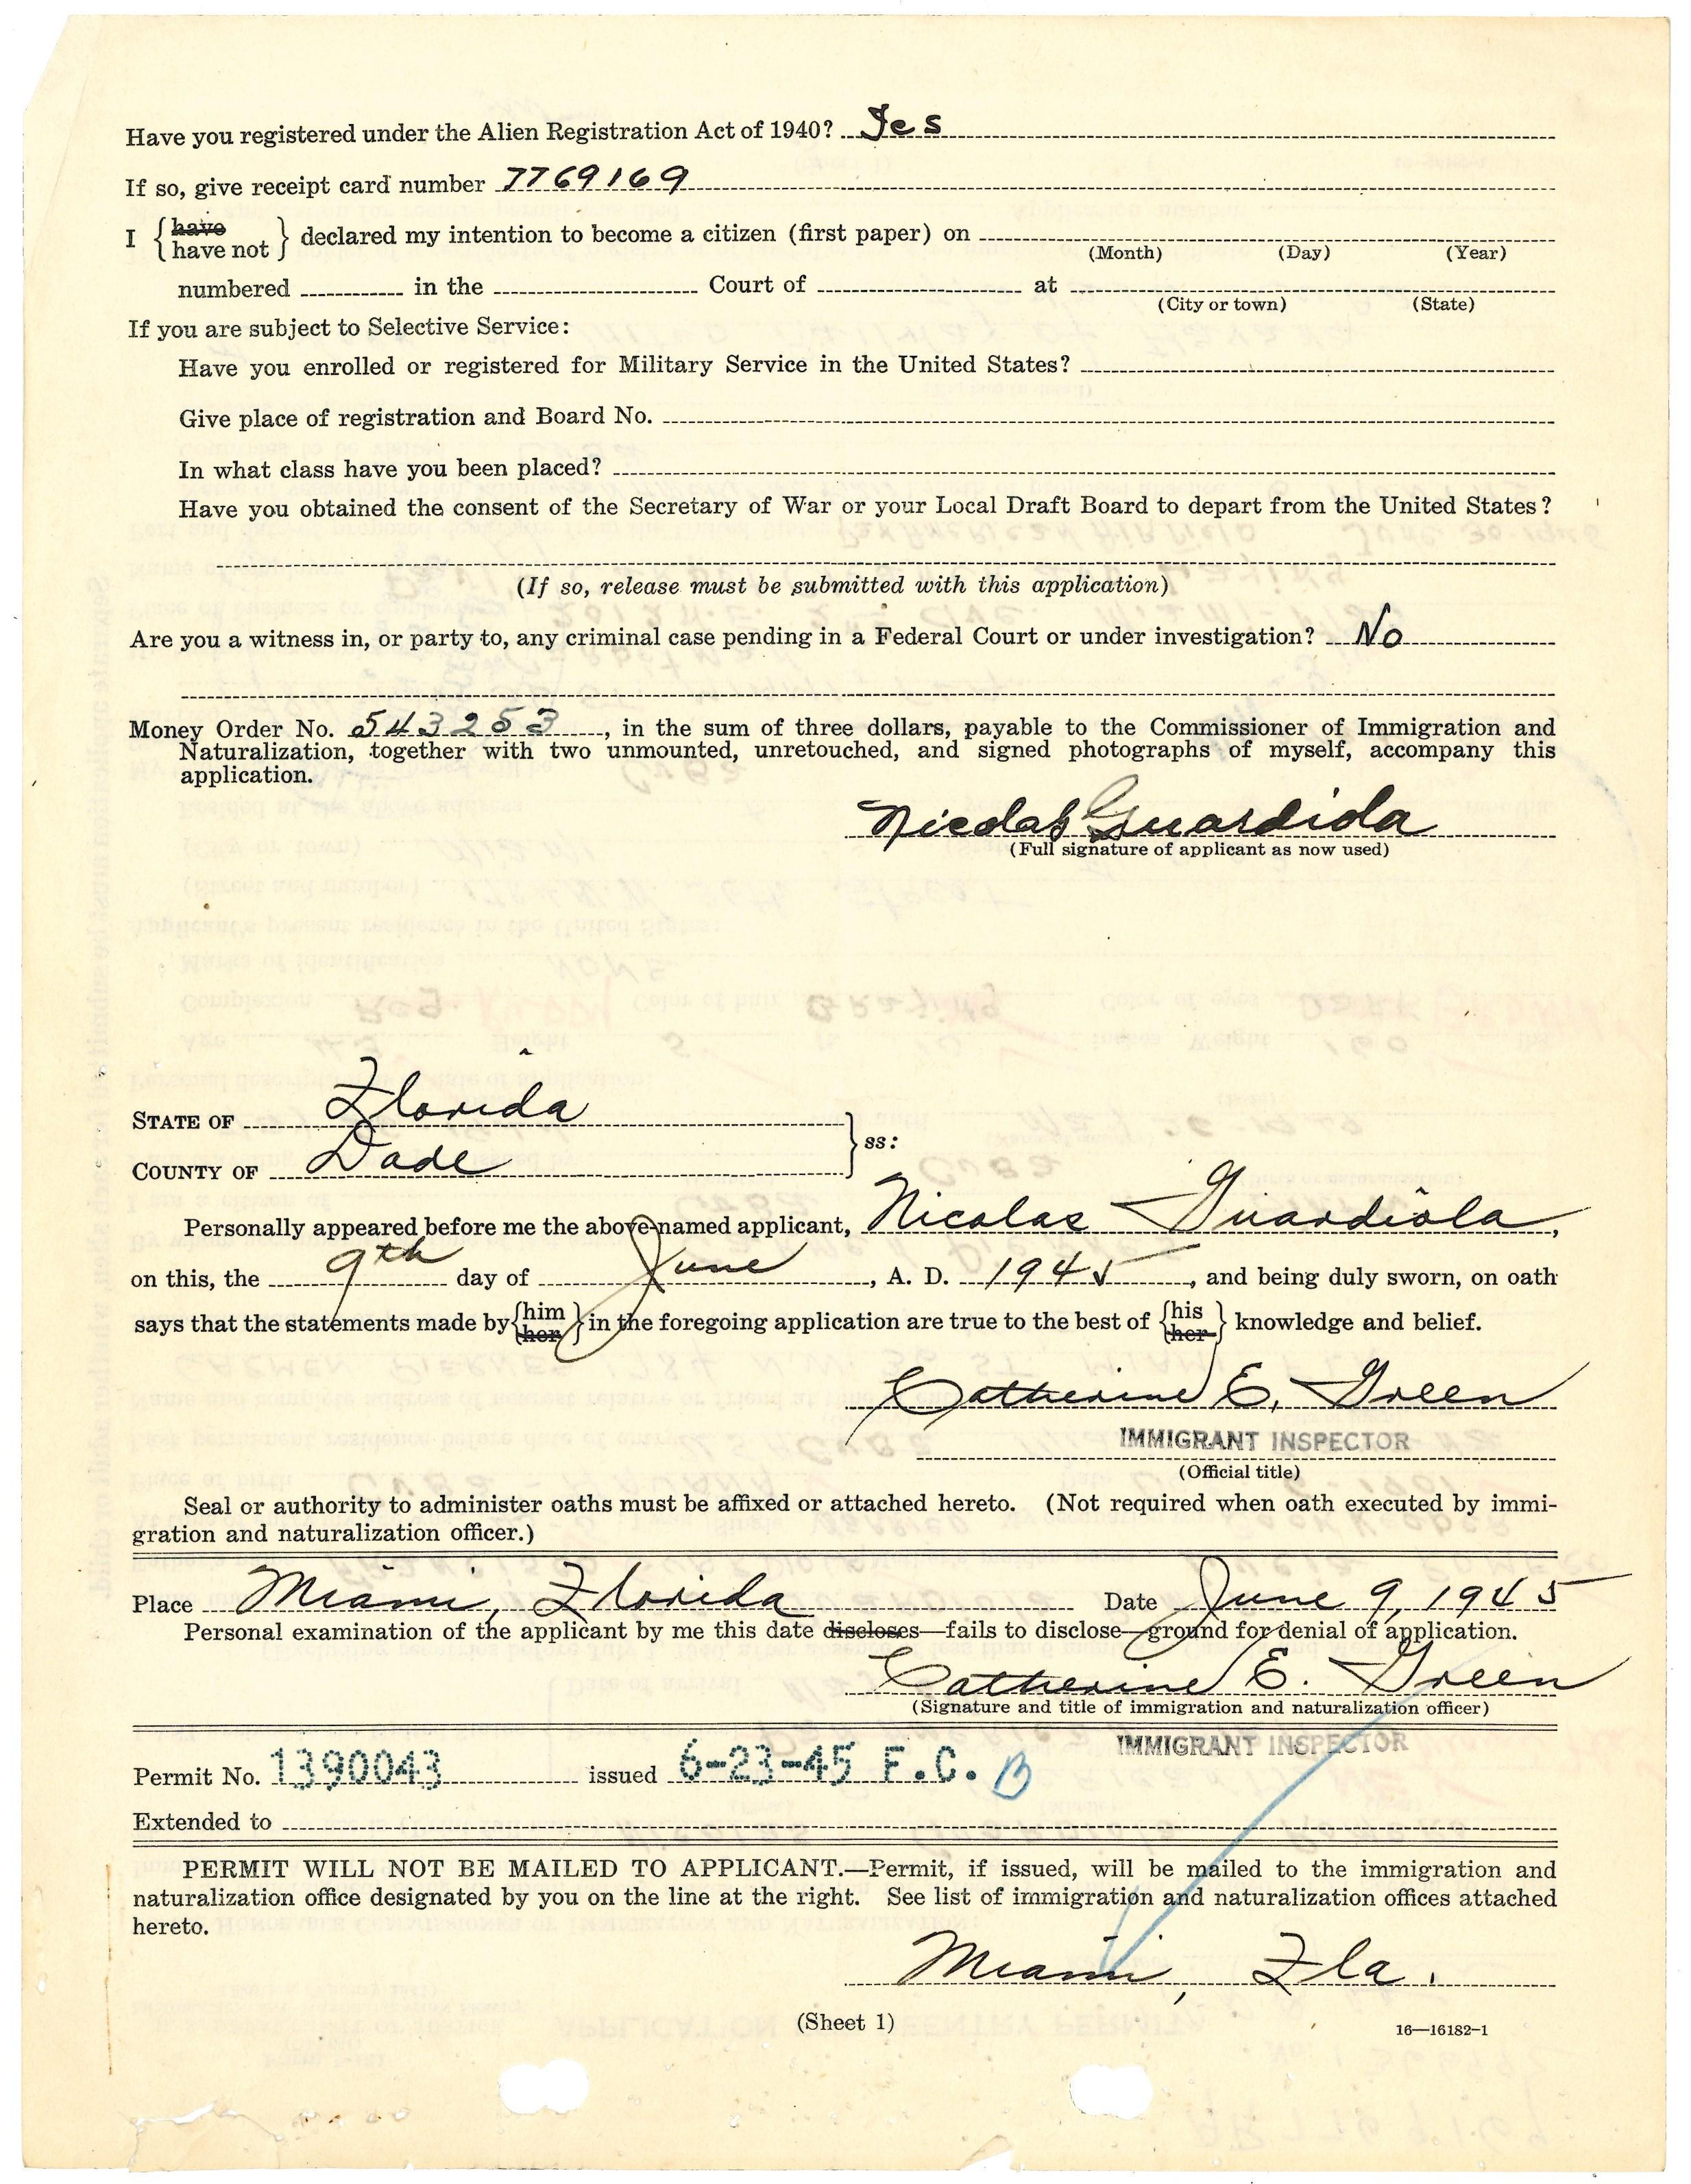 Have you registered under the Alien Registration Act of 1940? Yes
If so, give receipt card number 7769169
I { have have not } declared my intention to become a citizen (first paper) on
(Month) (Day) (Year)
numbered in the Court of at
(City or town) (State)
If you are subject to Selective Service:
Have you enrolled or registered for Military Service in the United States?
Give place of registration and Board No.
In what class have you been placed?
Have you obtained the consent of the Secretary of War or your Local Draft Board to depart from the United States?
(If so, release must be submitted with this application)
Are you a witness in, or party to, any criminal case pending in a Federal Court or under investigation? No
Money Order No. 543253, in the sum of three dollars, payable to the Commissioner of Immigration and
Naturalization, together with two unmounted, unretouched, and signed photographs of myself, accompany this
application.
Nicolas Guardiola
(Full signature of applicant as now used)
STATE OF Florida
COUNTY OF Dade } ss:
Personally appeared before me the above-named applicant, Nicolas Guardiola,
on this, the 9th day of June, A. D. 1945, and being duly sworn, on oath
says that the statements made by {him her} in the foregoing application are true to the best of {his her} knowledge and belief.
Catherine E. Green
IMMIGRANT INSPECTOR
(Official title)
Seal or authority to administer oaths must be affixed or attached hereto. (Not required when oath executed by immi-
gration and naturalization officer.)
Place Miami, Florida Date June 9, 1945
Personal examination of the applicant by me this date discloses—fails to disclose—ground for denial of application.
Catherine E. Green
(Signature and title of immigration and naturalization officer)
IMMIGRANT INSPECTOR
Permit No. 1390043 issued 6-23-45 F.C. B
Extended to
PERMIT WILL NOT BE MAILED TO APPLICANT.—Permit, if issued, will be mailed to the immigration and
naturalization office designated by you on the line at the right. See list of immigration and naturalization offices attached
hereto.
Miami, Fla.
(Sheet 1)
16—16182-1